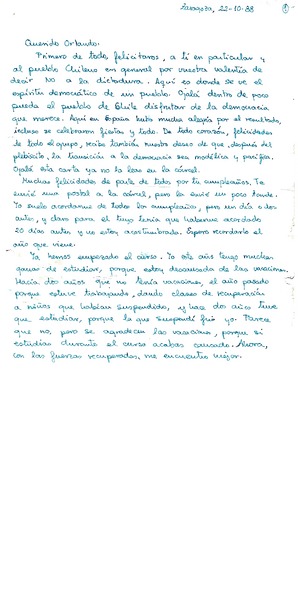 Zaragoza, 22-10-88 1
Querido Orlando:
Primero de todo, felicitaros, a ti en particular y
al pueblo Chileno en general por vuestra valentía de
decir NO a la dictadura. Aquí es donde se ve el
espíritu democrático de un pueblo. Ojalá dentro de poco
pueda el pueblo de Chile disfrutar de la democracia
que merece. Aquí en España hubo mucha alegría por el resultado,
incluso se celebraron fiestas y todo. De todo corazón, felicidades
de todo el grupo, recibe también nuestro deseo de que, después del
plebiscito, la transición a la democracia sea modélica y pacífica.
Ojalá esta carta ya no la leas en la cárcel.
Muchas felicidades de parte de todos por tu cumpleaños. Te
envié una postal a la cárcel, pero la envié un poco tarde.
Yo suelo acordarme de todos los cumpleaños, pero un día o dos
antes, y claro para el tuyo tenía que haberme acordado
20 días antes y no estoy acostumbrada. Espero recordarlo el
año que viene.
Ya hemos empezado el curso. Yo este año tengo muchas
ganas de estudiar, porque estoy descansada de las vacaciones.
Hacía dos años que no tenía vacaciones, el año pasado
porque estuve trabajando, dando clases de recuperación
a niños que habían suspendido, y hace dos años tuve
que estudiar, porque la que suspendí fui yo. Parece
que no, pero se agradecen las vacaciones, porque si
estudias durante el curso acabas cansado. Ahora,
con las fuerzas recuperadas, me encuentro mejor.